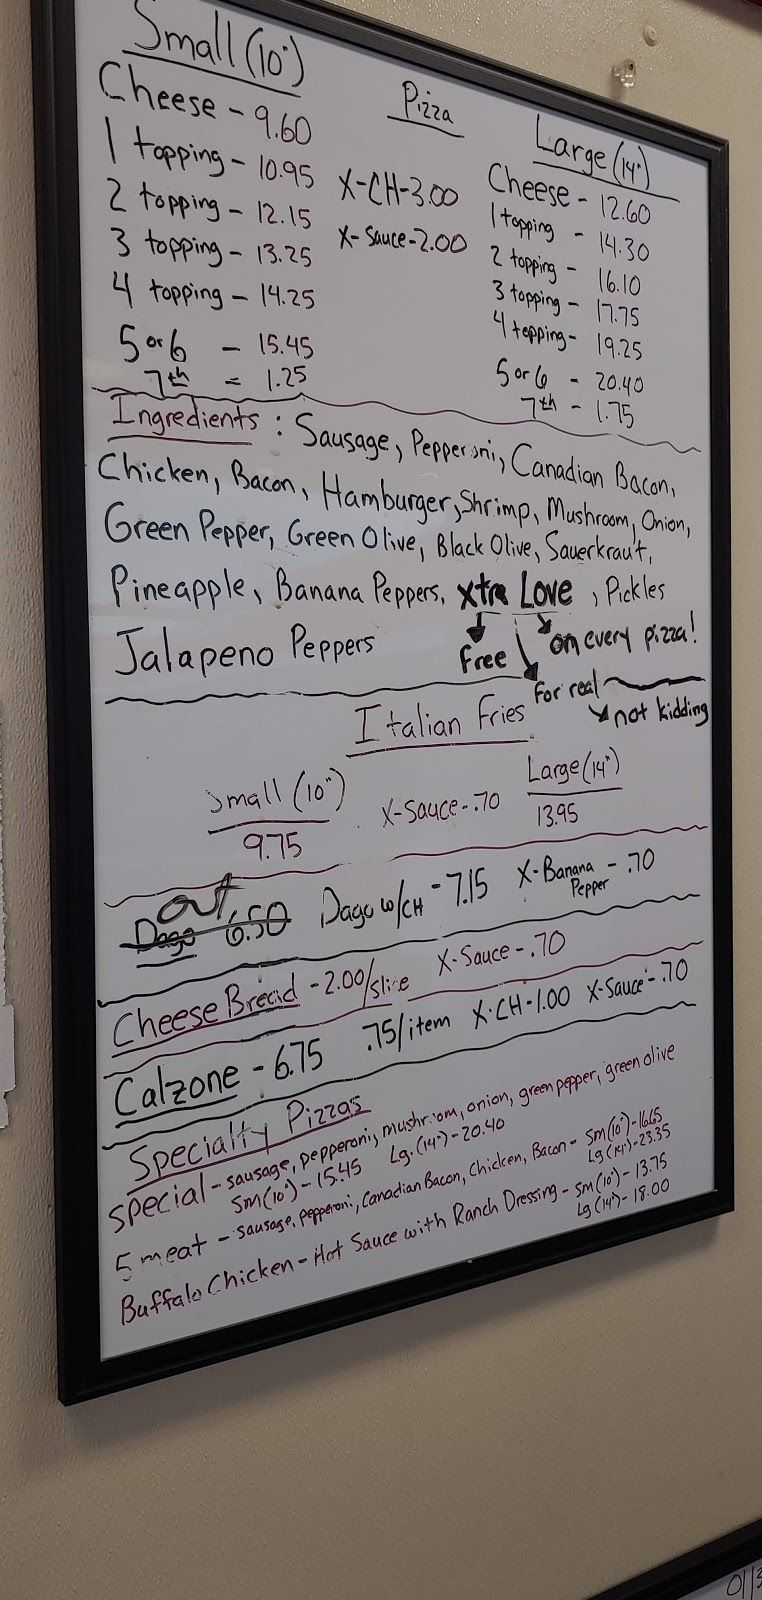 Small (10")
Cheese - 9.60
1 topping - 10.95
2 topping - 12.15
3 topping - 13.25
4 topping - 14.25
5 or 6 - 15.45
7th = 1.25
Pizza
X-CH-3.00
X-Sauce-2.00
Large (14")
Cheese - 12.60
1 topping - 14.30
2 topping - 16.10
3 topping - 17.75
4 topping - 19.25
5 or 6 - 20.40
7th - 1.75
Ingredients : Sausage, Pepperoni, Canadian Bacon,
Chicken, Bacon, Hamburger, Shrimp, Mushroom, Onion,
Green Pepper, Green Olive, Black Olive, Sauerkraut,
Pineapple, Banana Peppers, xtra Love, Pickles
Jalapeno Peppers
Free
on every pizza!
For real
not kidding
Italian Fries
Small (10")
9.75
X-Sauce-.70
Large (14")
13.95
out
Dago 6.50 Dago w/CH - 7.15 X-Banana Pepper - .70
Cheese Bread - 2.00/slice X-Sauce - .70
Calzone - 6.75 .75/item X-CH-1.00 X-Sauce-.70
Specialty Pizzas
Special - sausage, pepperoni, mushroom, onion, green pepper, green olive
Sm(10") - 15.45 Lg. (14") - 20.40
5 meat - sausage, pepperoni, Canadian Bacon, Chicken, Bacon - Sm(10") - 16.65
Lg (14") - 23.35
Buffalo Chicken - Hot Sauce with Ranch Dressing - Sm(10") - 13.75
Lg (14") - 18.00